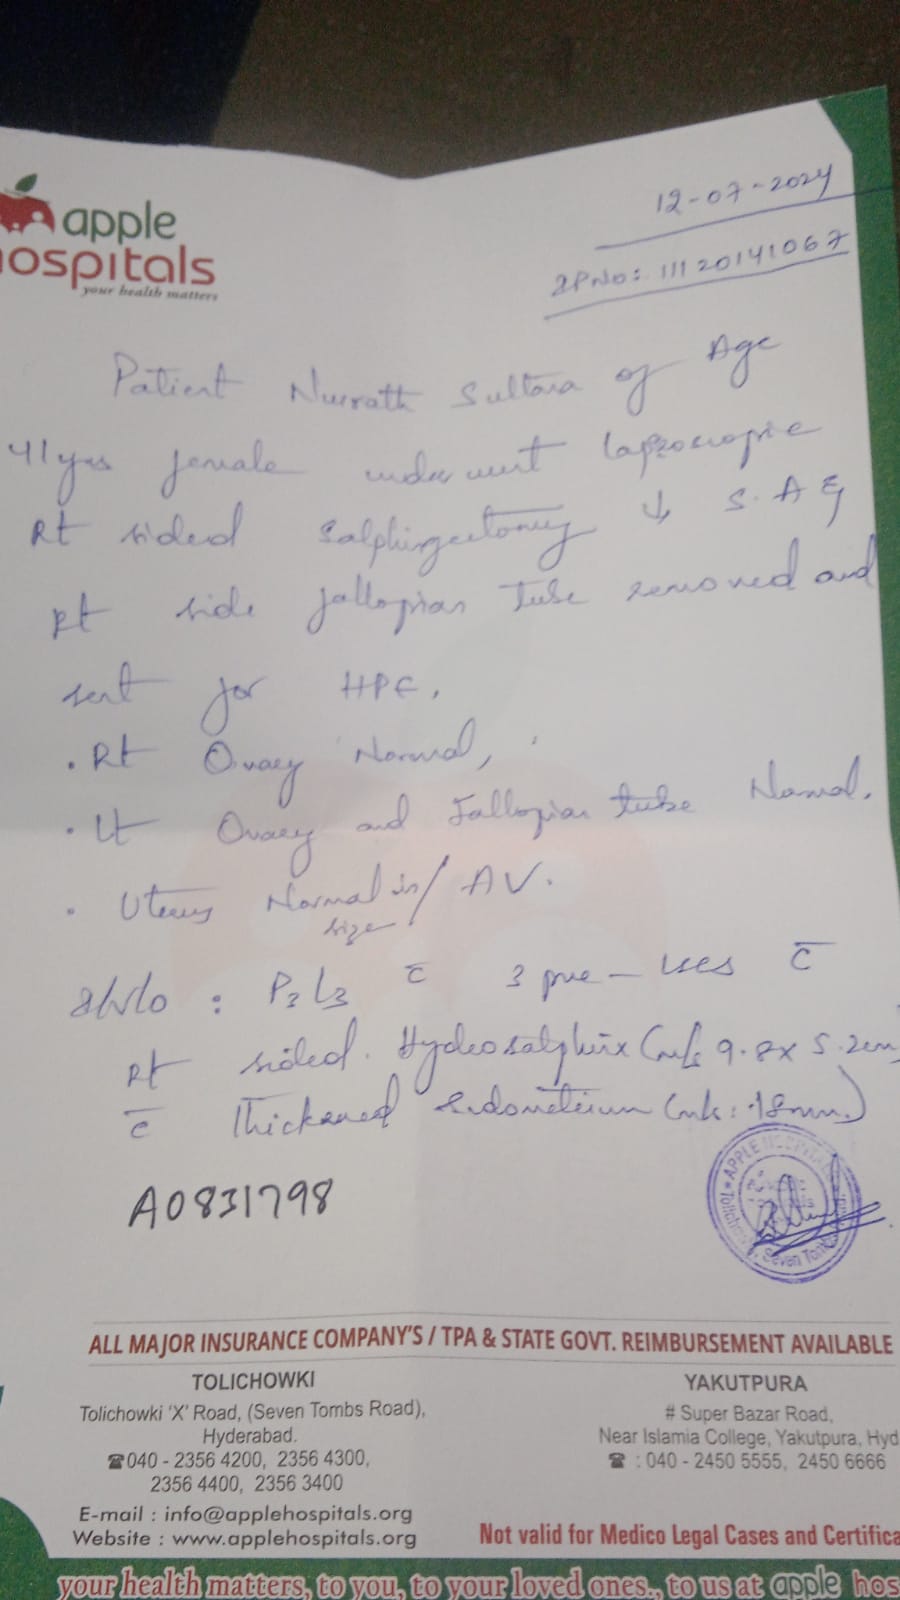 apple
hospitals
your health matters
12-07-2024
IPNo: 11120141067
Patient Nusrath Sultana of Age
41yrs female underwent laproscopic
Rt sided Salphingectomy ↓ S.A &
Rt side fallopian tube removed and
sent for HPE.
• Rt Ovary Normal,
• Lt Ovary and Fallopian tube Normal.
• Uterus Normal in size / AV.
: P3L3 c̄ 3 pre- LSCS c̄
Rt sided. Hydrosalphinx 9.8x5.2cm
c̄ Thickened endometrium : 18mm)
A0831798
APPLE HOSPITAL
Tolichowki, Seven Tombs
ALL MAJOR INSURANCE COMPANY'S / TPA & STATE GOVT. REIMBURSEMENT AVAILABLE
TOLICHOWKI
Tolichowki 'X' Road, (Seven Tombs Road),
Hyderabad.
☎040 - 2356 4200, 2356 4300,
2356 4400, 2356 3400
E-mail : info@applehospitals.org
Website : www.applehospitals.org
YAKUTPURA
# Super Bazar Road,
Near Islamia College, Yakutpura, Hyd
☎ : 040 - 2450 5555, 2450 6666
Not valid for Medico Legal Cases and Certifica
your health matters, to you, to your loved ones., to us at apple hos